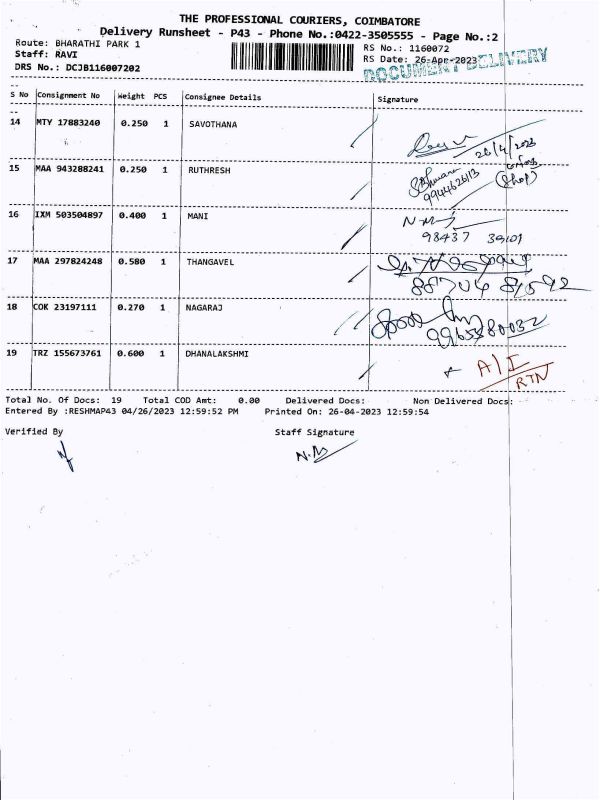 THE PROFESSIONAL COURIERS, COIMBATORE
Delivery Runsheet - P43 - Phone No.:0422-3505555 - Page No.:2
Route: BHARATHI PARK 1
Staff: RAVI
DRS No.: DCJB116007202
RS No.: 1160072
RS Date: 26-Apr-2023
DOCUMENT DELIVERY
S No Consignment No Weight PCS Consignee Details Signature
14 MTY 17883240 0.250 1 SAVOTHANA
26/4/2023
15 MAA 943288241 0.250 1 RUTHRESH
9944626113 (Shop)
16 IXM 503504897 0.400 1 MANI
98437 39101
17 MAA 297824248 0.580 1 THANGAVEL
18 COK 23197111 0.270 1 NAGARAJ
9965580032
19 TRZ 155673761 0.600 1 DHANALAKSHMI
A/I
RTN
Total No. Of Docs: 19 Total COD Amt: 0.00 Delivered Docs: Non Delivered Docs:
Entered By :RESHMAP43 04/26/2023 12:59:52 PM Printed On: 26-04-2023 12:59:54
Verified By Staff Signature
N.M